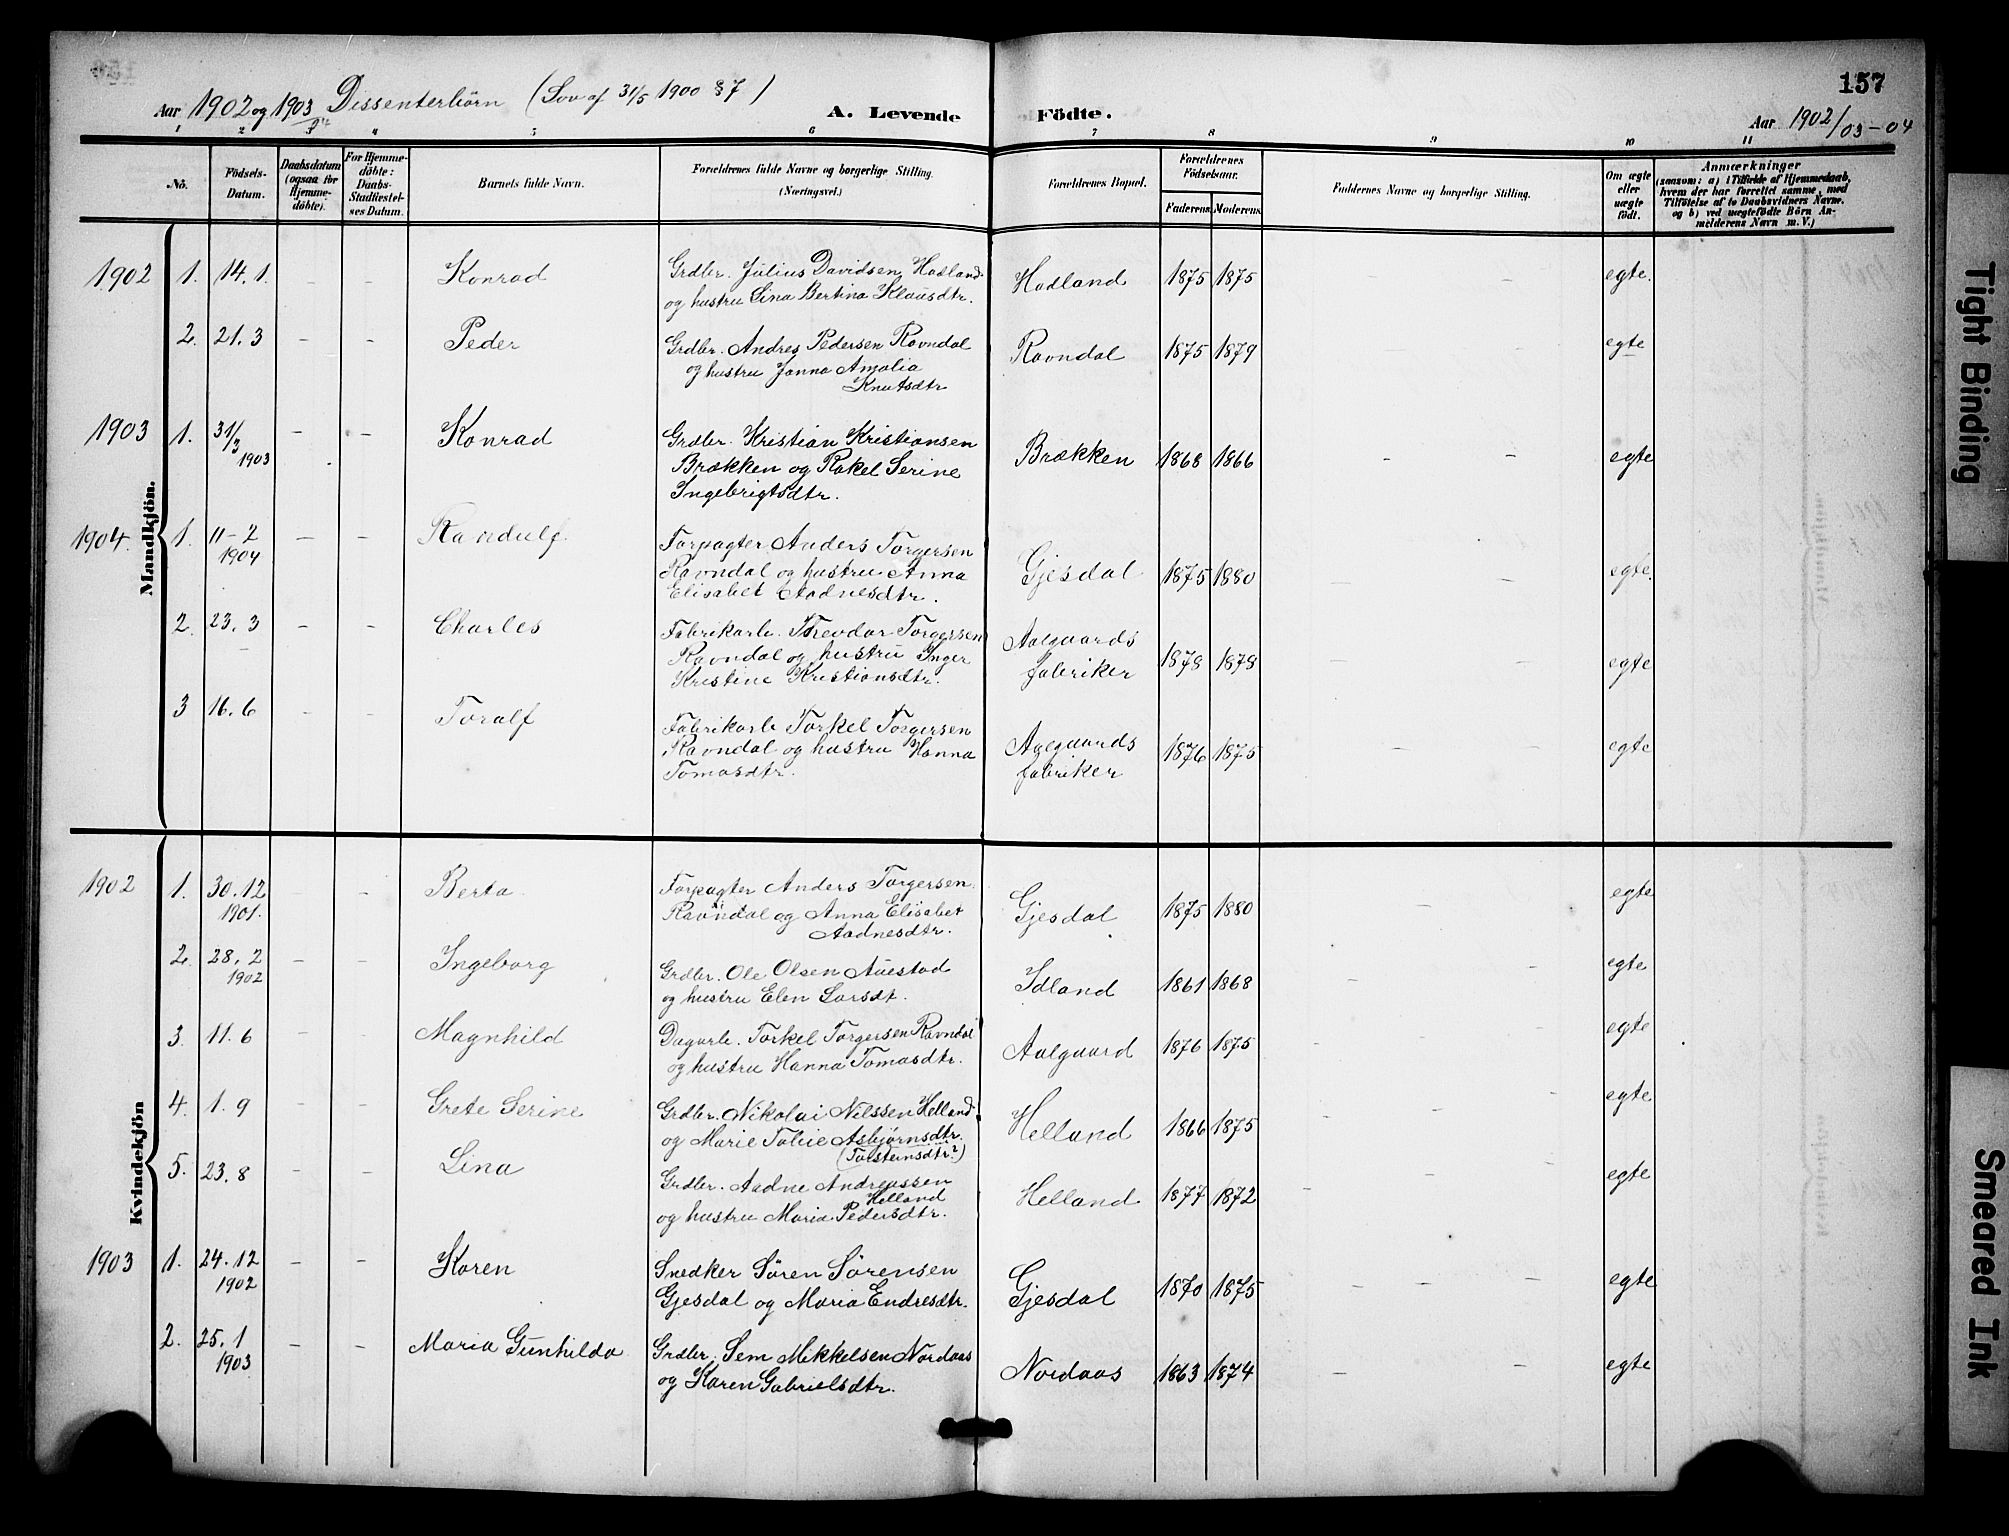 157
Aar 1902 og 1903 Dissenterbörn (Lov af 31/5 1900 § 7)
04
A. Levende Födte.
Aar 1902/03-04
1 2 3 4 5 6 7 8 9 10 11
No.
Födsels-Datum.
Daabsdatum (ogsaa for Hjemme-döbte).
For Hjemme-döbte: Daabs-Stadfæstel-ses Datum.
Barnets fulde Navn.
Forældrenes fulde Navne og borgerlige Stilling. (Næringsvei.)
Forældrenes Bopæl.
Forældrenes Födselsaar.
Faderens Moderens
Faddernes Navne og borgerlige Stilling.
Om ægte eller uægte födt.
Anmærkninger
(saasom: a) i Tilfælde af Hjemmedaab, hvem der har forrettet samme, med Tilföielse af to Daabsvidners Navne. og b) ved uægtefödte Börn An-melderens Navn m. V.)
Mandkjön.
1902 1. 14.1. - - Konrad Grdbr. Julius Davidsen Hadland Hadland 1875 1875 - - egte.
og hustru Lina Bertina Klausdtr.
2. 21.3 - - Peder Grdbr. Andres Pedersen Ravndal Ravndal 1875 1879 - - egte
og hustru Janna Amalia
Knutsdtr
1903 1. 31/3 1903 - - Konrad Grdbr. Kristian Kristiansen Brækken 1868 1866 - - egte
Brækken og Rakel Serine
Ingebrigtsdtr.
1904. 1. 11-2 1904 - - Randulf Forpagter Anders Torgersen Gjesdal 1875 1880 - - egte.
Ravndal og hustru Anna
Elisabet Aadnesdtr.
2. 23.3 - - Charles Fabrikarb. Theodor Torgersen Aalgaards fabriker 1878 1878 - - egte
Ravndal og hustru Inger
Kristine Kristiansdtr.
3 16.6 - - Toralf Fabrikarb Torkel Torgersen Aalgaards fabriker 1876 1875 - - egte
Ravndal og hustru Hanna
Tomasdtr.
Kvindekjön
1902 1. 30.12 1901. - - Berta Forpagter Anders Torgersen Gjesdal 1875 1880 - - egte
Ravndal og Anna Elisabet
Aadnesdtr.
2. 28.2 1902 - - Ingeborg Grdbr. Ole Olsen Auestad Idland 1861 1868 - - egte
og hustru Elen Larsdt.
3. 11.6 - - Magnhild Dagarb. Torkel Torgersen Ravndal Aalgaard 1876 1875 - - egte
og hustru Hanna Tomasdtr.
4. 1.9 - - Grete Serine Grdbr. Nikolai Nilssen Helland Helland 1866 1875 - - egte
og Marie Tobie Asbjørnsdtr.
(Torsteinsdtr?)
5. 23.8 - - Lina Grdbr. Aadne Andreassen Helland 1877 1872 - - egte
Helland
og hustru Maria Pedersdtr.
1903 1. 24.12 1902 - - Karen Snedker Sören Sörensen Gjesdal 1870 1875 - - - egte
Gjesdal og Maria Endresdtr.
2. 25.1 1903 - - Maria Gunhilda Grdbr. Sem Mikkelsen Nordaas Nordaas 1863 1874 - - egte
og Karen Gabrielsdtr.
Tight Binding
Smeared Ink